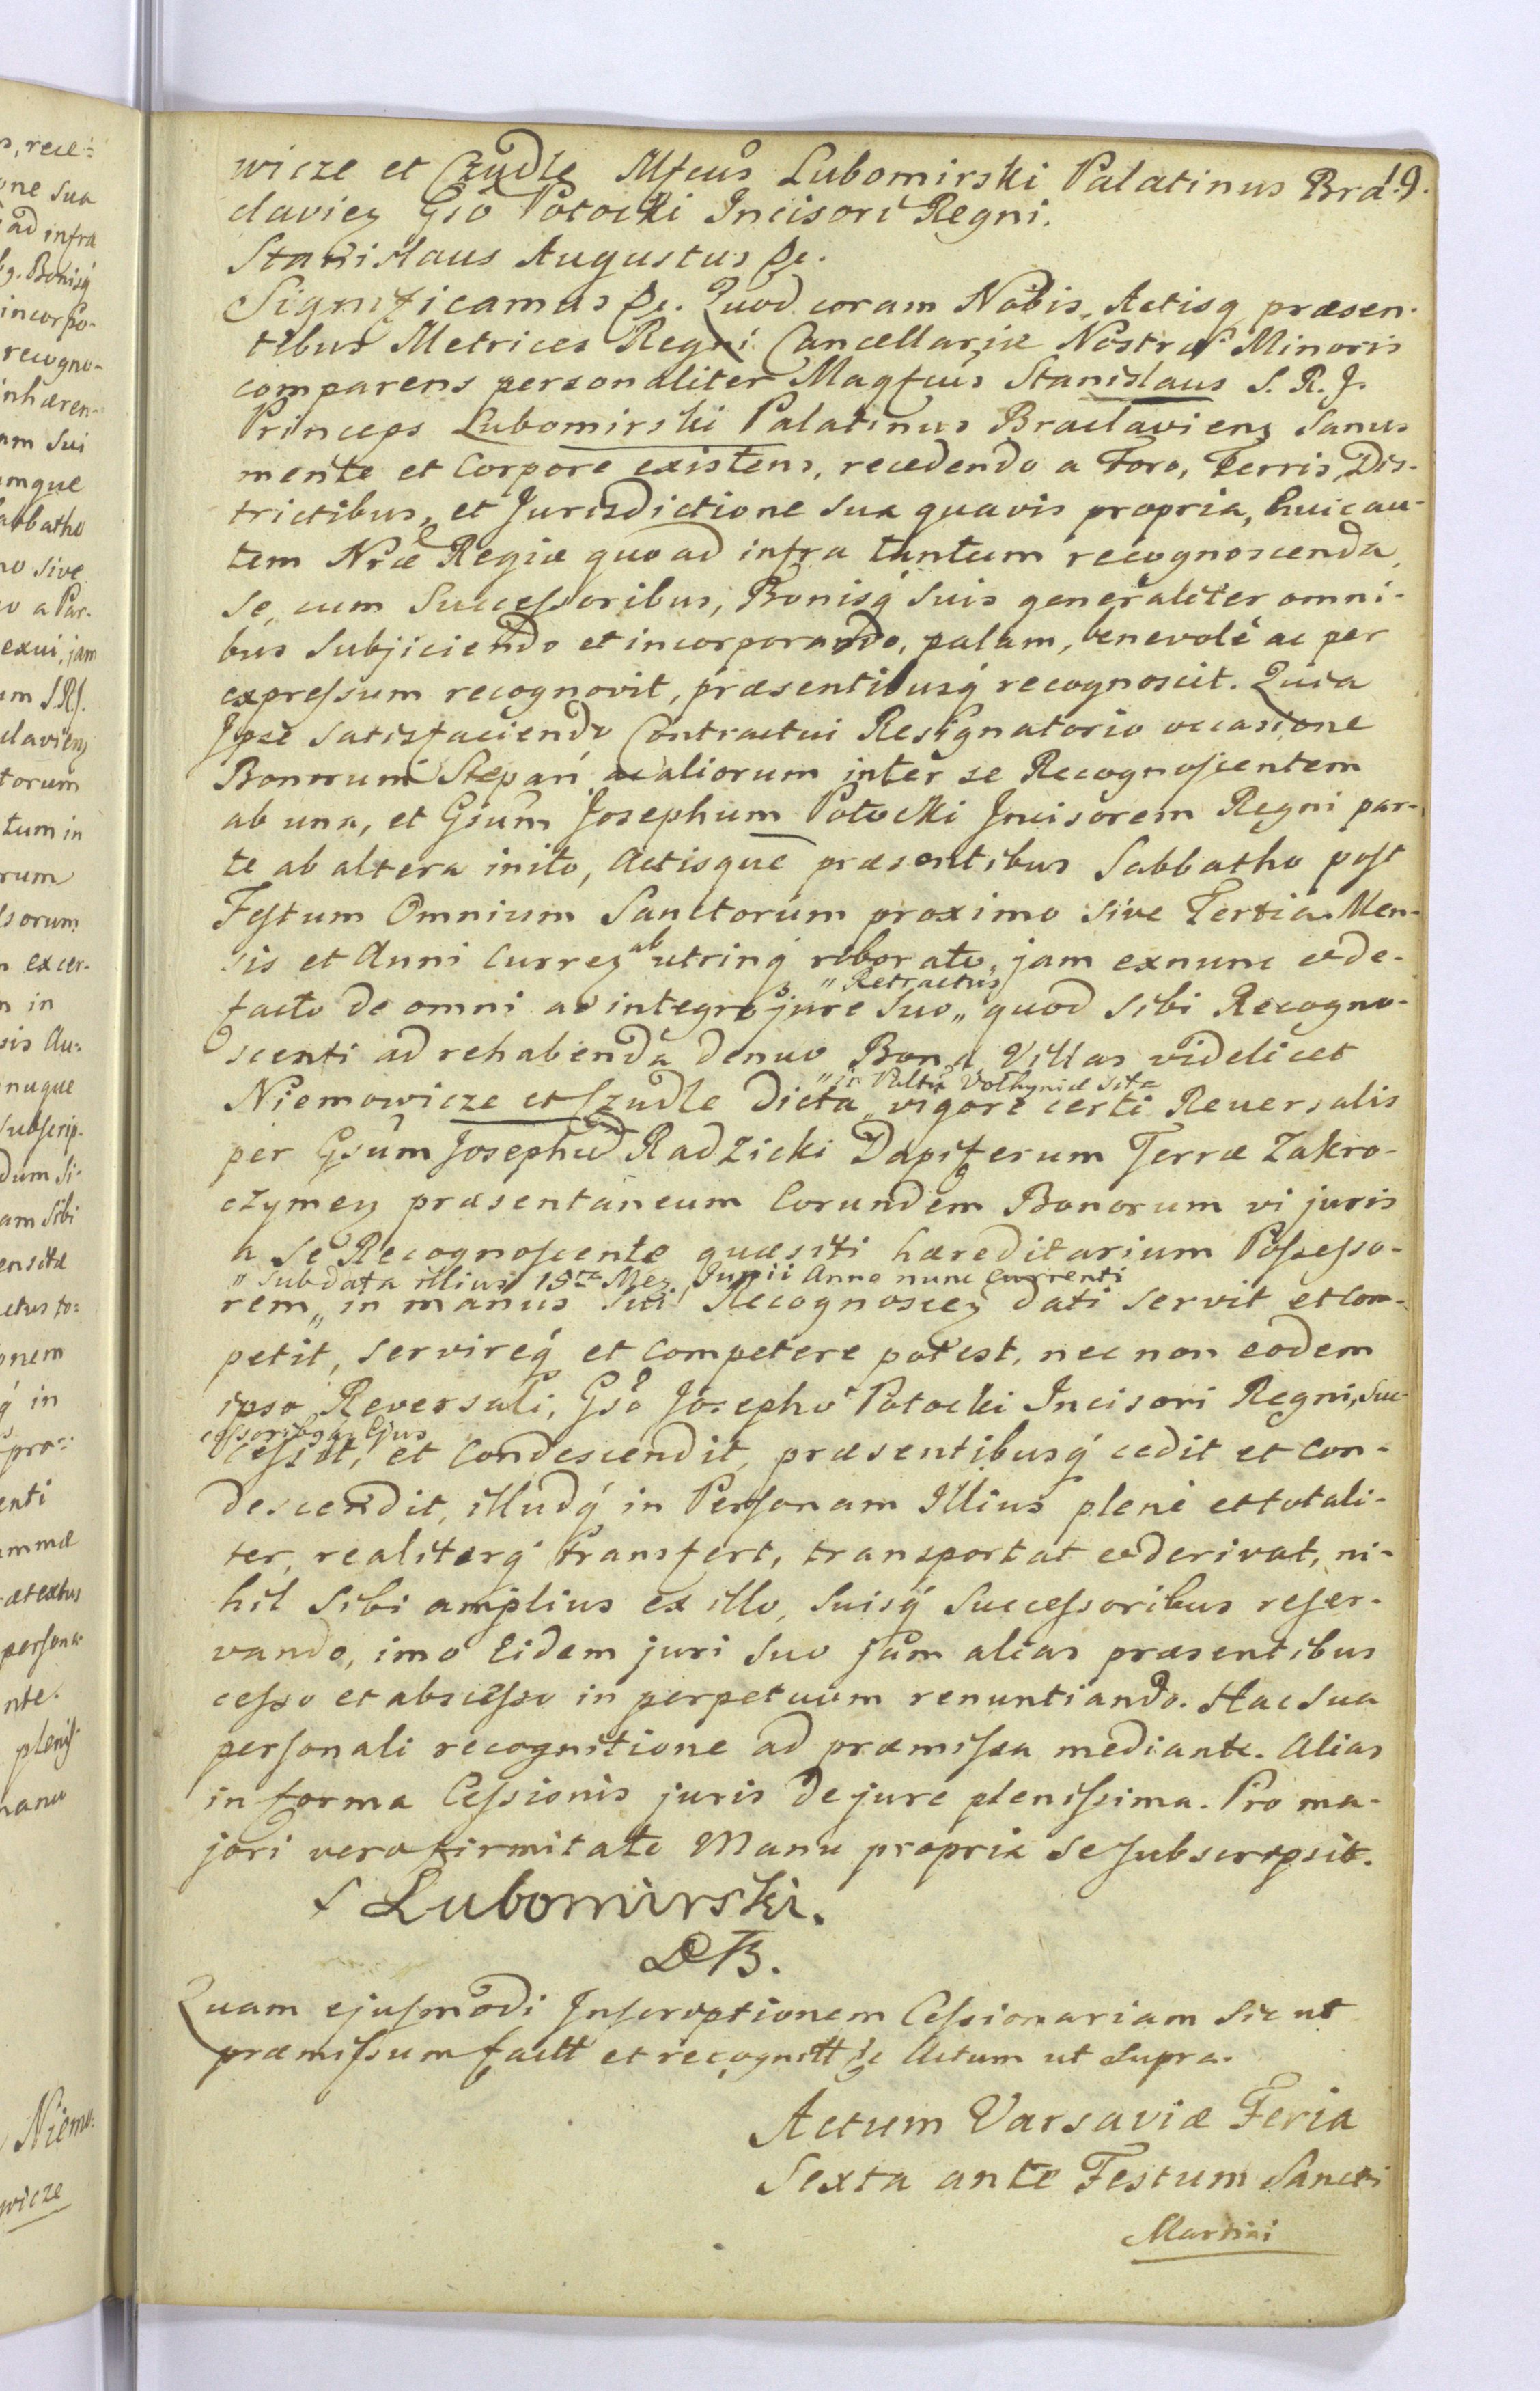 wicze et Czudle Mfcus Lubomirski Palatinus Bra- 9.
claviens Gso Potocki Incisori Regni.
Stanislaus Augustus &c.
Significamus &c. Quod coram Nobis, Actisq præsen-
tibus Metrices Regni Cancellariæ Nostræ Minoris
comparens personaliter Magfcus Stanislaus S. R. J.
Princeps Lubomirski Palatinus Braclaviens Sanus
mente et Corpore existens, recedendo a Foro, Terris, Dis-
trictibus, et Jurisdictione sua quavis propria, huic au-
tem Nræ Regiæ quo ad infra tantum recognoscenda,
se, cum Successoribus, Bonisq suis generaliter omni-
bus subjiciendo et incorporando, palam, benevolè ac per
expressum recognovit, præsentibusq recognoscit. Quia
Jpse satisfaciendo Contractui Resignatorio occasione
Bonorum Stepań ac aliorum inter se Recognoscentem
ab una, et Gsum Josephum Potocki Jncisorem Regni par-
te ab altera inito, Actisque præsentibus Sabbatho post
Festum Omnium Sanctorum proximo sive Tertia Men-
sis et Anni Currez ab utrinq roborato, jam exnunc et de-
facto de omni ac integro jure suo „ quod sibi Recogno-
„ Retractus
scenti ad rehabenda denuo Bona Villas videlicet
Niemowicze et Czudle dicta „ vigore certi Reversalis
„ in Pałtu Volhyniæ sita
per Gsum Josephum Radzicki Dapiferum Terræ Zakro-
czymez præsentaneum Eorundem Bonorum vi juris
a se Recognoscente quæsiti hæreditarium Possesso-
„ sub data illius 15ta Mez Junii Anno nunc Currenti
rem „ in manus sui Recognoscez dati servit et com-
petit, servireq et competere potest, nec non eodem
ipso Reversali, Gso Josepho Potocki Incisori Regni, Suc-
cessoribusq Ejus
cessit, et condescendit, præsentibusq cedit et con-
descendit, illudq in Personam Illius plenè et totali-
ter, realiterq transfert, transportat et derivat, ni-
hil sibi amplius ex illo, suisq Successoribus reser-
vando, imo Eidem juri suo jam alias præsentibus
cesso et abscesso in perpetuum renuntiando. Hac sua
personali recognitione ad præmissa mediante. Alias
in forma Cessionis juris de jure plenissima. Pro ma-
jori vero firmitate Manu propria se subscripsit.
S Lubomirski.
Quam ejusmodi Inscriptionem Cessionariam sic ut
præmissum factt et recognitt &c Actum ut supra.
Actum Varsaviæ Feria
Sexta ante Festum Sancti
Martini